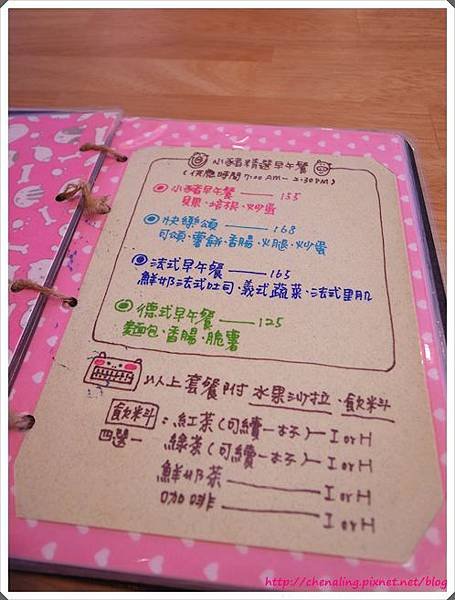 小豬精選早午餐
(供應時間7:00AM-2:30PM)
小豬早午餐——155
貝果、培根、炒蛋
快樂頌——168
可頌、薯餅、香腸、火腿、炒蛋
法式早午餐——165
鮮奶法式吐司、義式蔬菜、法式里肌
德式早午餐——125
麵包、香腸、脆薯
以上套餐附水果沙拉、飲料
飲料:紅茶(可續一杯)—I or H
四選一 綠茶(可續一杯)—I or H
鮮奶茶——I or H
咖啡——I or H
http://chenaling.pixnet.net/blog